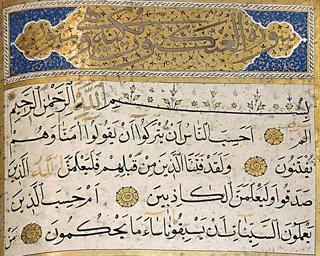 سورة العنكبوت مكية
بسم الله الرحمن الرحيم
الم احسب الناس ان يتركوا ان يقولوا آمنا وهم
يفتنون ولقد فتنا الذين من قبلهم فليعلمن الله الذين
صدقوا وليعلمن الكاذبين ام حسب الذين
يعملون السيئات ان يسبقونا ساء ما يحكمون من